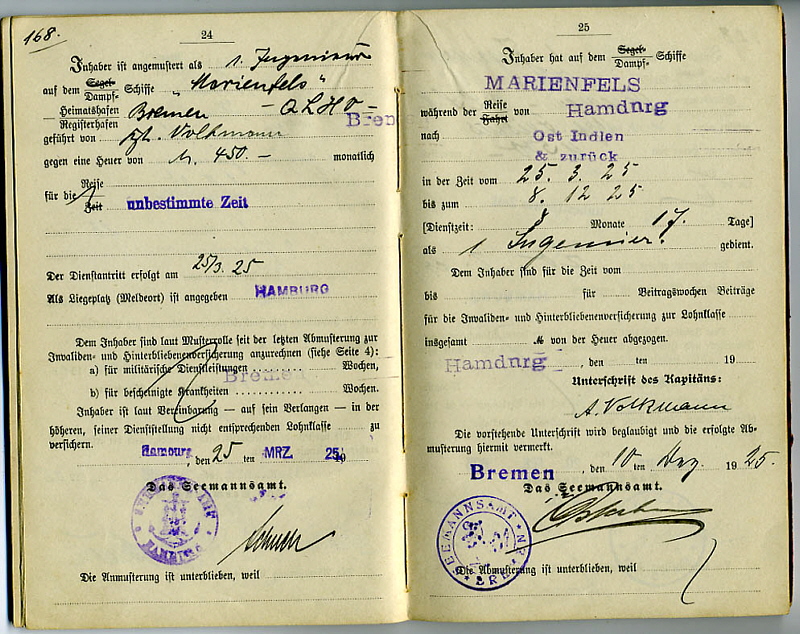 168.
24
Inhaber ist angemustert als 1. Ingenieur
auf dem Segel- Dampf- Schiffe "Marienfels"
Heimatshafen Registerhafen Bremen - QLHO -
Bremen
geführt von Kpt. Volkmann
gegen eine Heuer von M. 450.- monatlich
für die Reise Zeit unbestimmte Zeit
Der Dienstantritt erfolgt am 25/3. 25
Als Liegeplatz (Meldeort) ist angegeben HAMBURG
Dem Inhaber sind laut Musterrolle seit der letzten Abmusterung zur
Invaliden- und Hinterbliebenenversicherung anzurechnen (siehe Seite 4):
a) für militärische Dienstleistungen .......... Wochen,
Bremen
b) für bescheinigte Krankheiten ............ Wochen.
Inhaber ist laut Vereinbarung — auf sein Verlangen — in der
höheren, seiner Dienststellung nicht entsprechenden Lohnklasse zu
versichern.
Hamburg, den 25 ten MRZ. 25 19
Das Seemannsamt.
SEEMANNSAMT HAMBURG
Die Anmusterung ist unterblieben, weil
25
Inhaber hat auf dem Segel- Dampf- Schiffe
MARIENFELS
während der Reise Fahrt von Hamburg
nach Ost Indien
& zurück
in der Zeit vom 25. 3. 25
bis zum 8. 12 25
[Dienstzeit: 8 Monate 17. Tage]
als 1 Ingenieur. gedient.
Dem Inhaber sind für die Zeit vom
bis für Beitragswochen Beiträge
für die Invaliden- und Hinterbliebenenversicherung zur Lohnklasse
insgesamt M von der Heuer abgezogen.
Hamburg, den ten 19
Unterschrift des Kapitäns:
A. Volkmann
Die vorstehende Unterschrift wird beglaubigt und die erfolgte Ab-
musterung hiermit vermerkt.
Bremen, den 10 ten Dez. 1925.
Das Seemannsamt.
SEEMANNSAMT BREMEN
Die Abmusterung ist unterblieben, weil